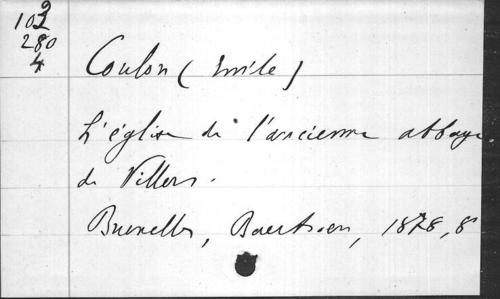 9
102
280
4
Coulon (Emile)
L'église de l'ancienne abbaye
de Villers.
Bruxelles, Baertsoen, 1878, 8°